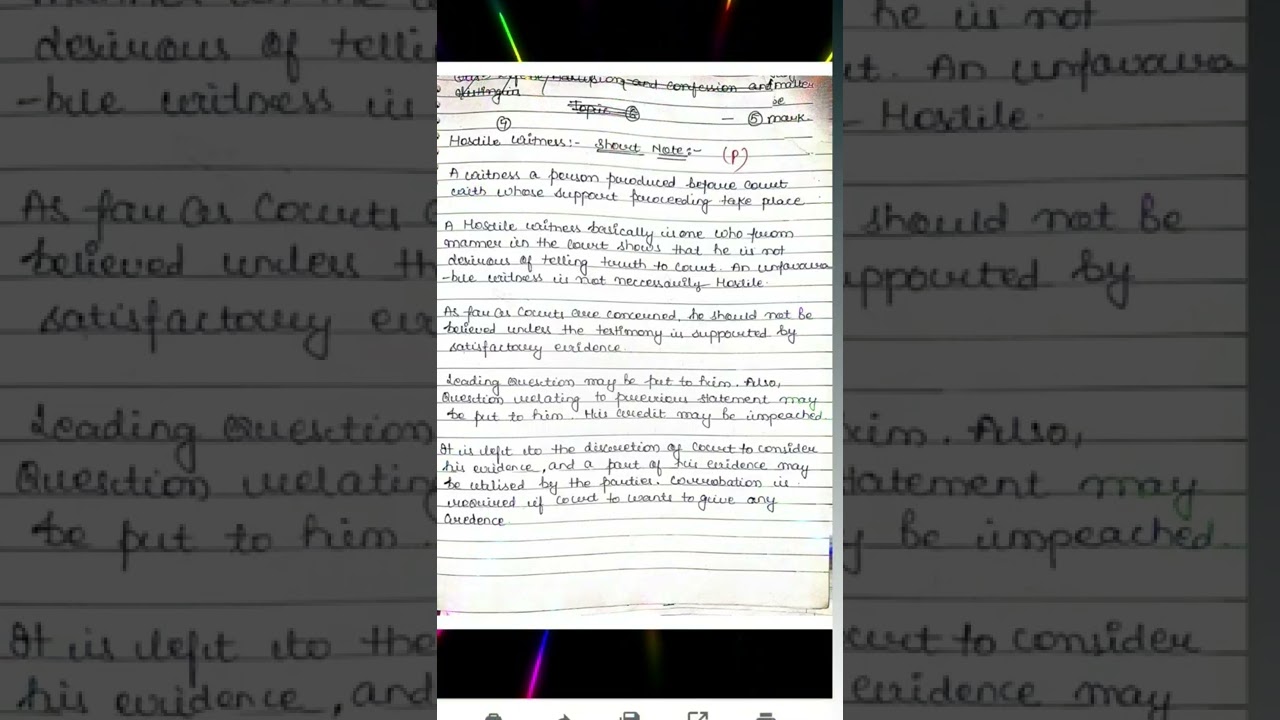 Admission and confession and matter
Topic ⑥ se
④ - ⑤ mark
Hostile witness:- Short Note:- (P)
A witness a person produced before court
with whose support proceeding take place
A Hostile witness basically is one who from
manner in the court shows that he is not
desirous of telling truth to court. An unfavoura
-ble witness is not neccessarily Hostile.
As far as Courts are concerned, he should not be
believed unless the testimony is supported by
satisfactory evidence.
Leading Question may be put to him. Also,
Question relating to previous statement may
be put to him. His credit may be impeached.
It is left to the discretion of Court to consider
his evidence, and a part of his evidence may
be utilised by the parties. Corrobation is
required if court to wants to give any
Credence.